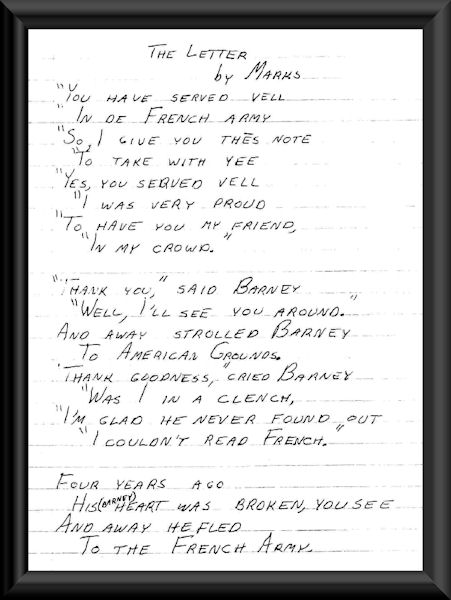 THE LETTER
by MARKS
"YOU HAVE SERVED VELL
IN DE FRENCH ARMY
"SO, I GIVE YOU THĒS NOTE
"TO TAKE WITH YEE
"YES, YOU SERVED VELL
"I WAS VERY PROUD
"TO HAVE YOU MY FRIEND,
"IN MY CROWD."
"THANK YOU," SAID BARNEY
"WELL, I'LL SEE YOU AROUND."
AND AWAY STROLLED BARNEY
TO AMERICAN GROUNDS.
'THANK GOODNESS," CRIED BARNEY
"WAS I IN A CLENCH,
"I'M GLAD HE NEVER FOUND OUT
"I COULDN'T READ FRENCH."
FOUR YEARS AGO
HIS (BARNEY) HEART WAS BROKEN, YOU SEE
AND AWAY HE FLED
TO THE FRENCH ARMY.